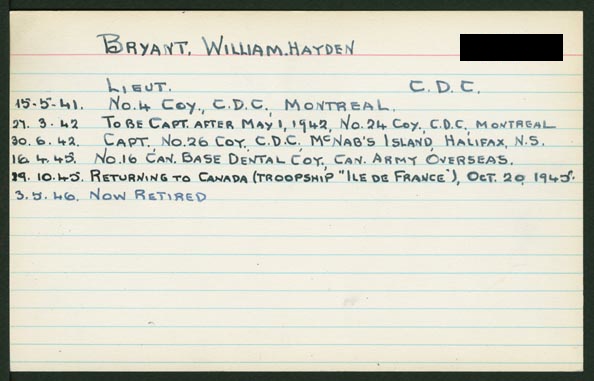 BRYANT, WILLIAM.HAYDEN
LIEUT. C.D.C.
15-5-41. No.4 COY., C.D.C., MONTREAL.
27.3.42 TO BE CAPT. AFTER MAY 1, 1942, No.24 COY., C.D.C, MONTREAL
30.6.42. CAPT. No.26 COY, C.D.C, McNAB'S ISLAND, HALIFAX, N.S.
16.4.45. No.16 CAN. BASE DENTAL COY, CAN. ARMY OVERSEAS.
29.10.45. RETURNING TO CANADA (TROOPSHIP "ILE DE FRANCE"), OCT. 20, 1945.
3.5.46. NOW RETIRED